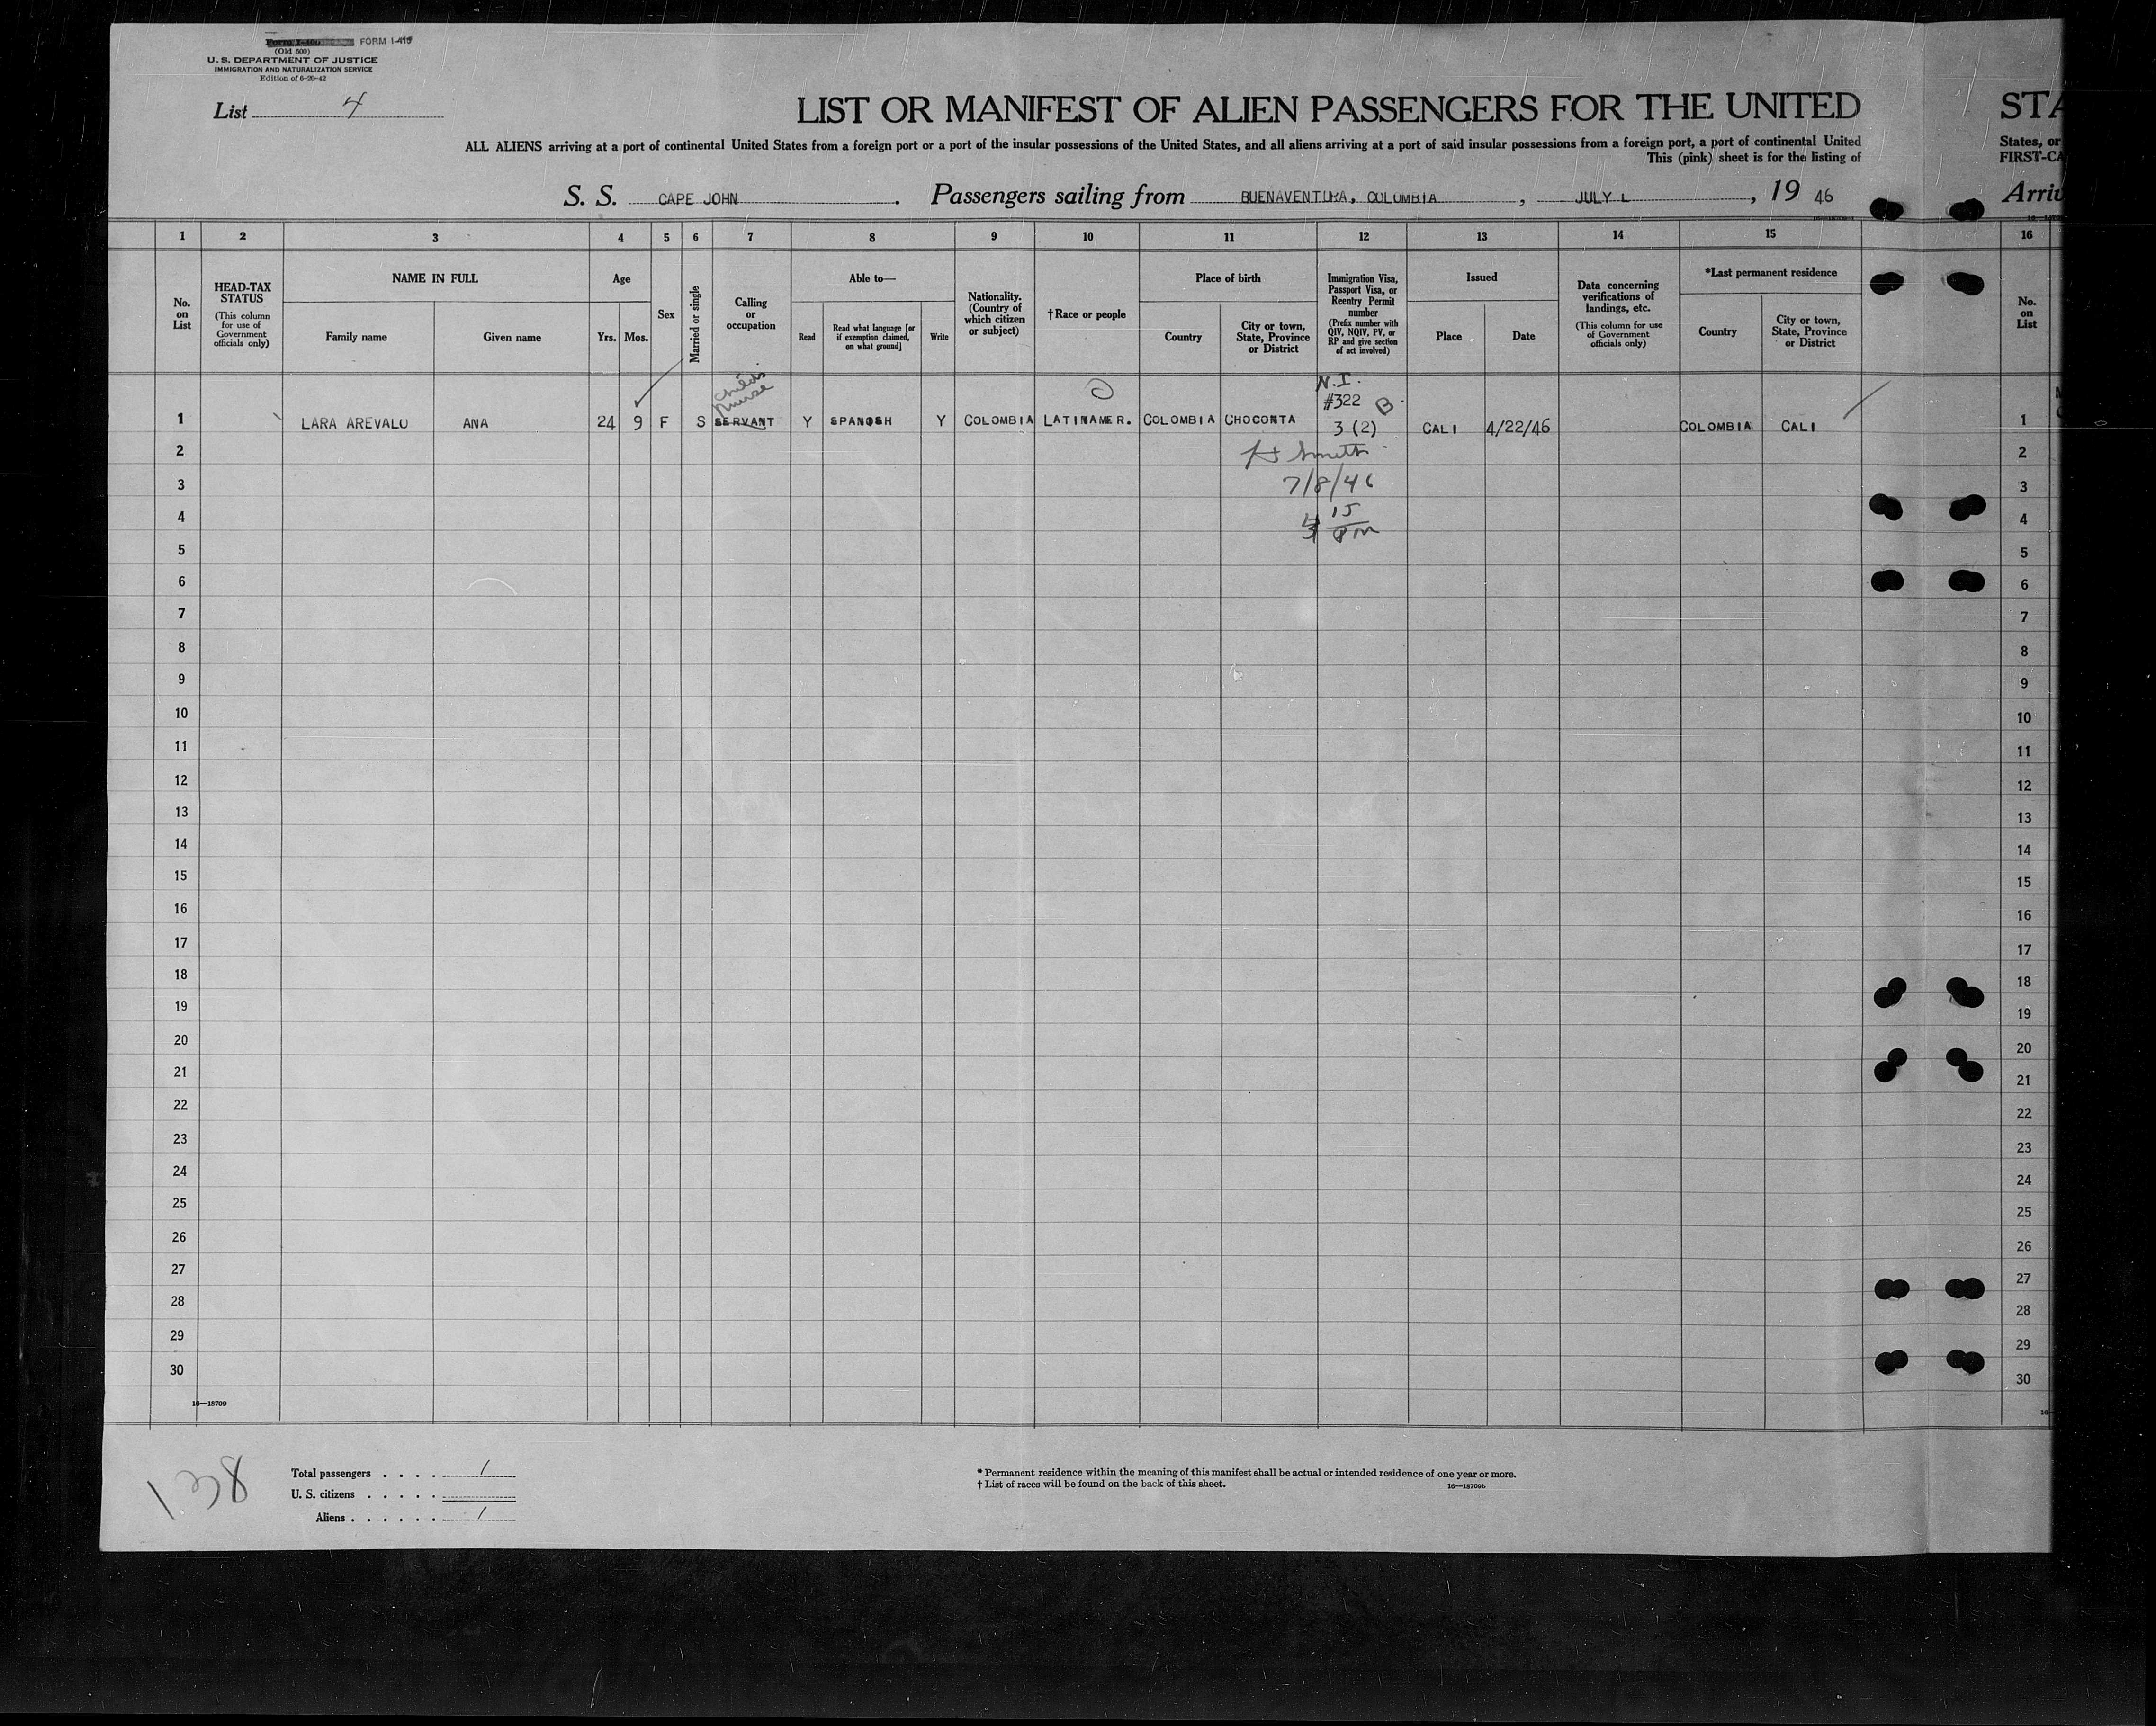 FORM I-415
(Old 500)
U. S. DEPARTMENT OF JUSTICE
IMMIGRATION AND NATURALIZATION SERVICE
Edition of 6-20-42
List 4
LIST OR MANIFEST OF ALIEN PASSENGERS FOR THE UNITED STA
ALL ALIENS arriving at a port of continental United States from a foreign port or a port of the insular possessions of the United States, and all aliens arriving at a port of said insular possessions from a foreign port, a port of continental United States, or
This (pink) sheet is for the listing of FIRST-CA
S. S. CAPE JOHN . Passengers sailing from BUENAVENTURA, COLOMBIA , JULY L , 19 46 Arriv
1 2 3 4 5 6 7 8 9 10 11 12 13 14 15 16
No. on List
HEAD-TAX STATUS
(This column for use of Government officials only)
NAME IN FULL
Family name
Given name
Age
Yrs. Mos.
Sex
Married or single
Calling or occupation
Able to—
Read
Read what language [or if exemption claimed, on what ground]
Write
Nationality. (Country of which citizen or subject)
†Race or people
Place of birth
Country
City or town, State, Province or District
Immigration Visa, Passport Visa, or Reentry Permit number
(Prefix number with QIV, NQIV, PV, or RP and give section of act involved)
Issued
Place
Date
Data concerning verifications of landings, etc.
(This column for use of Government officials only)
*Last permanent residence
Country
City or town, State, Province or District
No. on List
Child's
nurse
N.I.
#322 B
1 LARA AREVALO ANA 24 9 F S SERVANT Y SPANOSH Y COLOMBIA LATINAMER. COLOMBIA CHOCONTA 3 (2) CALI 4/22/46 COLOMBIA CALI 1
2 Smith 2
3 7/8/46 3
4 15 4
PM
5 5
6 6
7 7
8 8
9 9
10 10
11 11
12 12
13 13
14 14
15 15
16 16
17 17
18 18
19 19
20 20
21 21
22 22
23 23
24 24
25 25
26 26
27 27
28 28
29 29
30 30
16—18709
138
Total passengers . . . . 1
U. S. citizens . . . . .
Aliens . . . . . . 1
* Permanent residence within the meaning of this manifest shall be actual or intended residence of one year or more.
† List of races will be found on the back of this sheet.
16—18709b